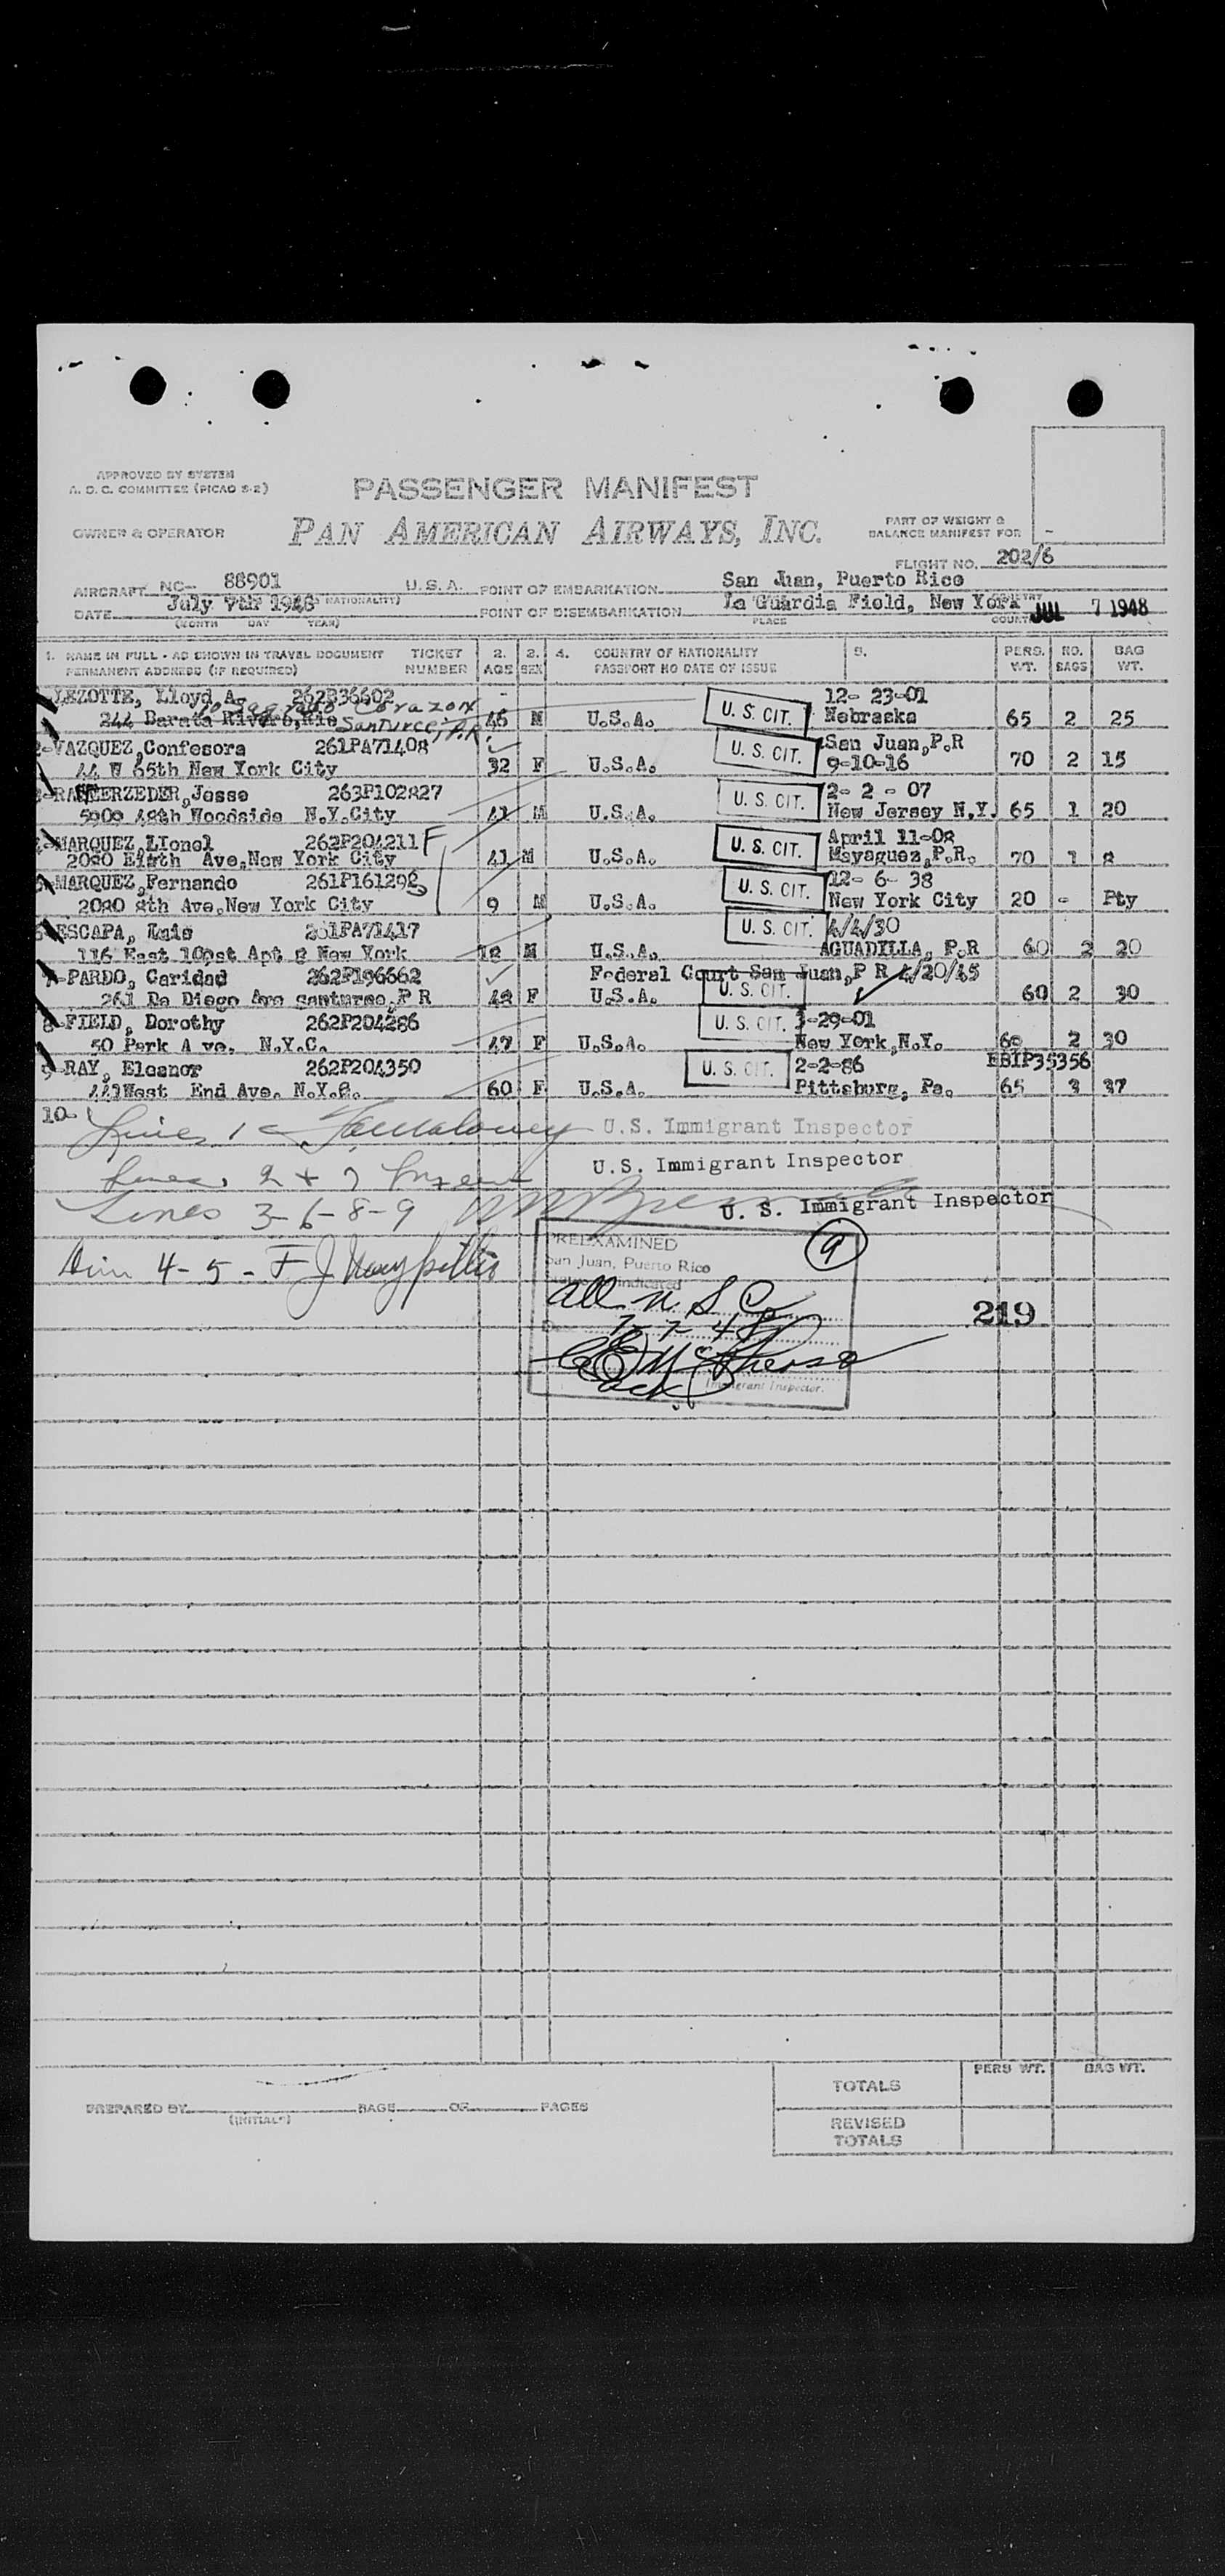 APPROVED BY SYSTEM
A. D. C. COMMITTEE (PICAO S-2)
PASSENGER MANIFEST
OWNER & OPERATOR
PAN AMERICAN AIRWAYS, INC.
PART OF WEIGHT &
BALANCE MANIFEST FOR
FLIGHT NO. 202/6
AIRCRAFT NC- 88901 U.S.A. POINT OF EMBARKATION San Juan, Puerto Rico
(NATIONALITY)
DATE July 7th 1948 POINT OF DISEMBARKATION La Guardia Field, New York JUL 7 1948
(MONTH DAY YEAR) PLACE COUNTRY
1. NAME IN FULL - AS SHOWN IN TRAVEL DOCUMENT TICKET 2. 3. 4. COUNTRY OF NATIONALITY 5. PERS. NO. BAG
PERMANENT ADDRESS (IF REQUIRED) NUMBER AGE SEX PASSPORT NO DATE OF ISSUE WT. BAGS WT.
LEZOTTE, Lloyd A. 262P36602 12- 23-01
Sagrado Corazon
244 Barata Rivero, Rio Santurce, P.R. 46 M U.S.A. U. S. CIT. Nebraska 65 2 25
2-VAZQUEZ,Confesora 261PA71408 San Juan,P.R
44 W 65th New York City 32 F U.S.A. U. S. CIT. 9-10-16 70 2 15
ERZEDER,Jesse 263P102827 2- 2 - 07
5909 48th Woodside N.Y.City 41 M U.S.A. U. S. CIT. New Jersey N.Y. 65 1 20
MARQUEZ,LIonel 262P204211 F April 11-08
2080 Eihth Ave,New York City 41 M U.S.A. U. S. CIT. Mayaguez,P.R. 70 1 8
MARQUEZ,Fernando 261P161298 12- 6- 38
2080 8th Ave,New York City 9 M U.S.A. U. S. CIT. New York City 20 - Pty
ESCAPA, Luis 261PA71417 U. S. CIT. 4/4/30
116 East 100st Apt 8 New York 18 M U.S.A. AGUADILLA, P.R 60 2 20
7-PARDO, Caridad 262P196662 Federal Court San Juan,P R 4/20/45
261 De Diego Ave santurse,P R 48 F U.S.A. U. S. CIT. 60 2 30
8-FIELD, Dorothy 262P204286 U. S. CIT. 3-29-01
50 Park A ve. N.Y.C. 47 F U.S.A. New York,N.Y. 60 2 30
9-RAY, Eleanor 262P204350 U. S. CIT. 2-2-86 EBIP35356
441West End Ave. N.Y.C. 60 F U.S.A. Pittsburg, Pa. 65 3 37
10-
Lines 1 U.S. Immigrant Inspector
Lines 2 + 7 U.S. Immigrant Inspector
Lines 3-6-8-9 U. S. Immigrant Inspector
4-5- F J
PREEXAMINED
San Juan, Puerto Rico
indicated
9
All U. S. C.
7-7-48
219
Immigrant Inspector.
TOTALS PERS WT. BAG WT.
PREPARED BY PAGE OF PAGES
(INITIALS)
REVISED
TOTALS